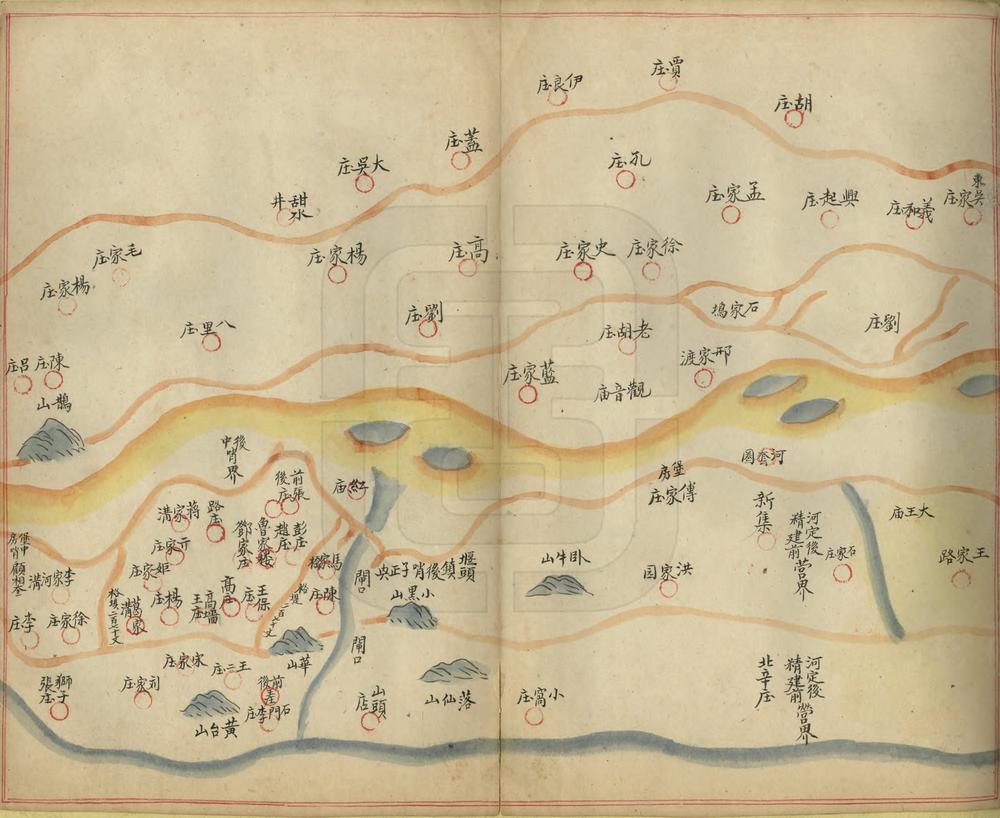 伊良庄
賈庄
胡庄
蓋庄
大吳庄
孔庄
甜水井
孟家庄
興起庄
義和庄
東吳家庄
毛家庄
楊家庄
楊家庄
高庄
史家庄
徐家庄
八里庄
劉庄
老胡庄
石家塢
劉庄
呂庄
陳庄
鵲山
藍家庄
觀音庙
邢家渡
後中哨界
紅庙
前後張庄
蔣家溝
路庄
鄧家庄
魯家樓
趙庄
彭庄
傅家庄
堡房
河套圈
新集
河定後
精建前營界
大王庙
石家庄
王家路
李家河溝
姬家庄
楊庄
葛家溝
高墻王庄
高庄
王保庄
陳庄
閘口
堰頭鎮後哨子正央
小黑山
臥牛山
洪家园
李庄
徐家庄
宋家庄
王二庄
華山
閘口
獅子張庄
刘家庄
黃台山
石門李庄
山頭店
落仙山
小窩庄
北辛庄
河定後
精建前營界